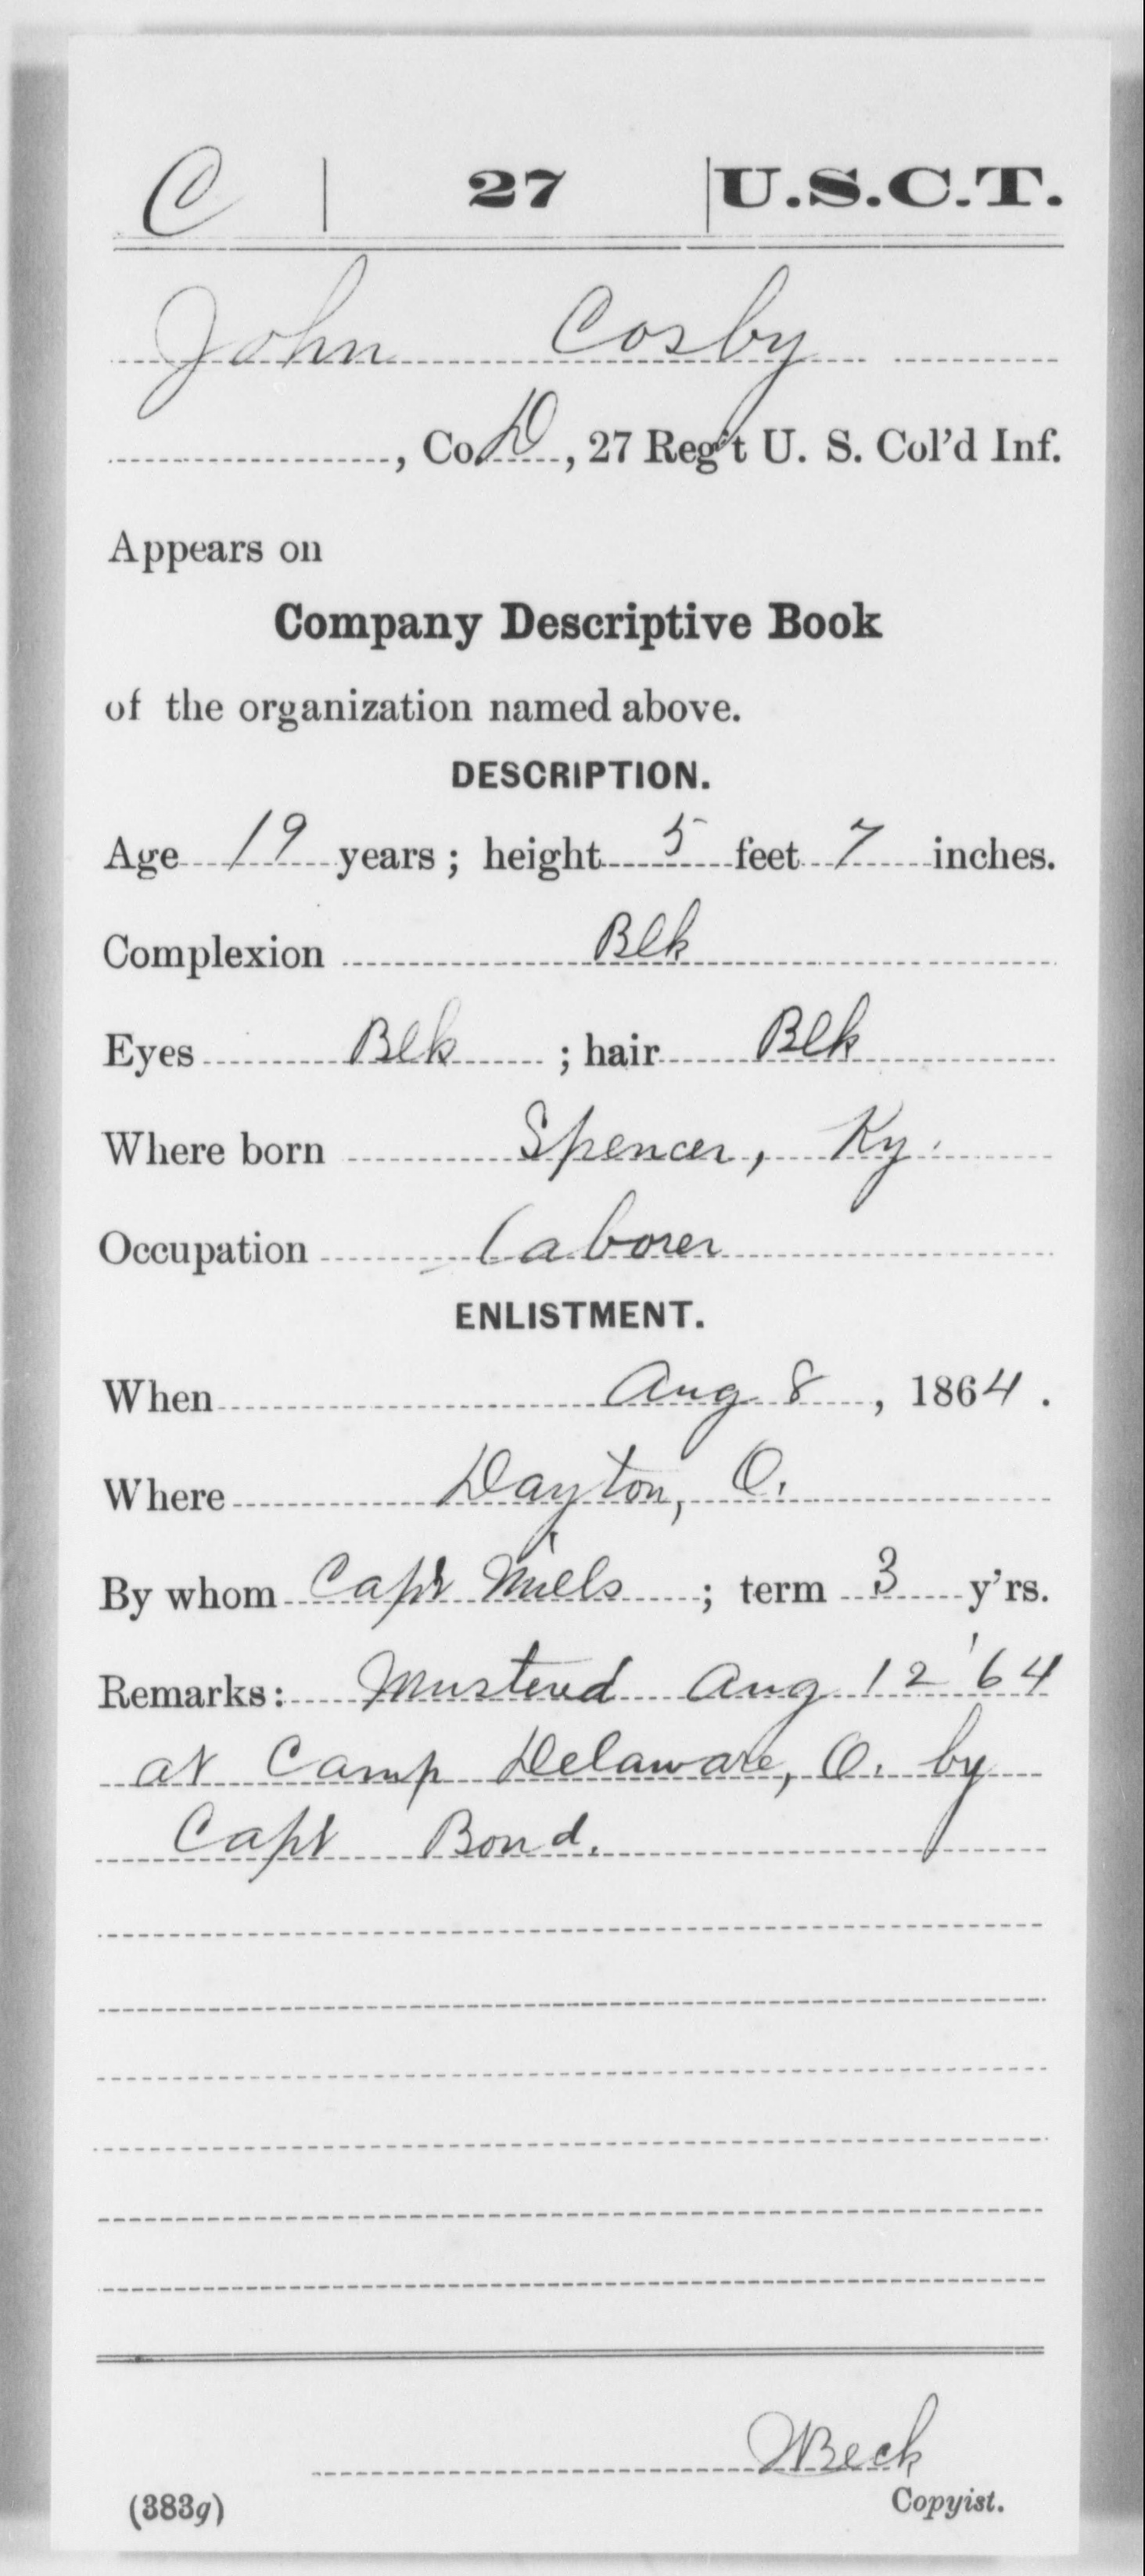 C | 27 | U.S.C.T.
John Cosby
, Co. D, 27 Reg't U. S. Col'd Inf.
Appears on
Company Descriptive Book
of the organization named above.
DESCRIPTION.
Age 19 years; height 5 feet 7 inches.
Complexion Blk
Eyes Blk; hair Blk
Where born Spencer, Ky.
Occupation Laborer
ENLISTMENT.
When Aug 8, 1864.
Where Dayton, O.
By whom Capt Mills; term 3 y'rs.
Remarks: Mustered Aug 12 '64
at Camp Delaware, O. by
Capt Bond.
Beck
(383g) Copyist.